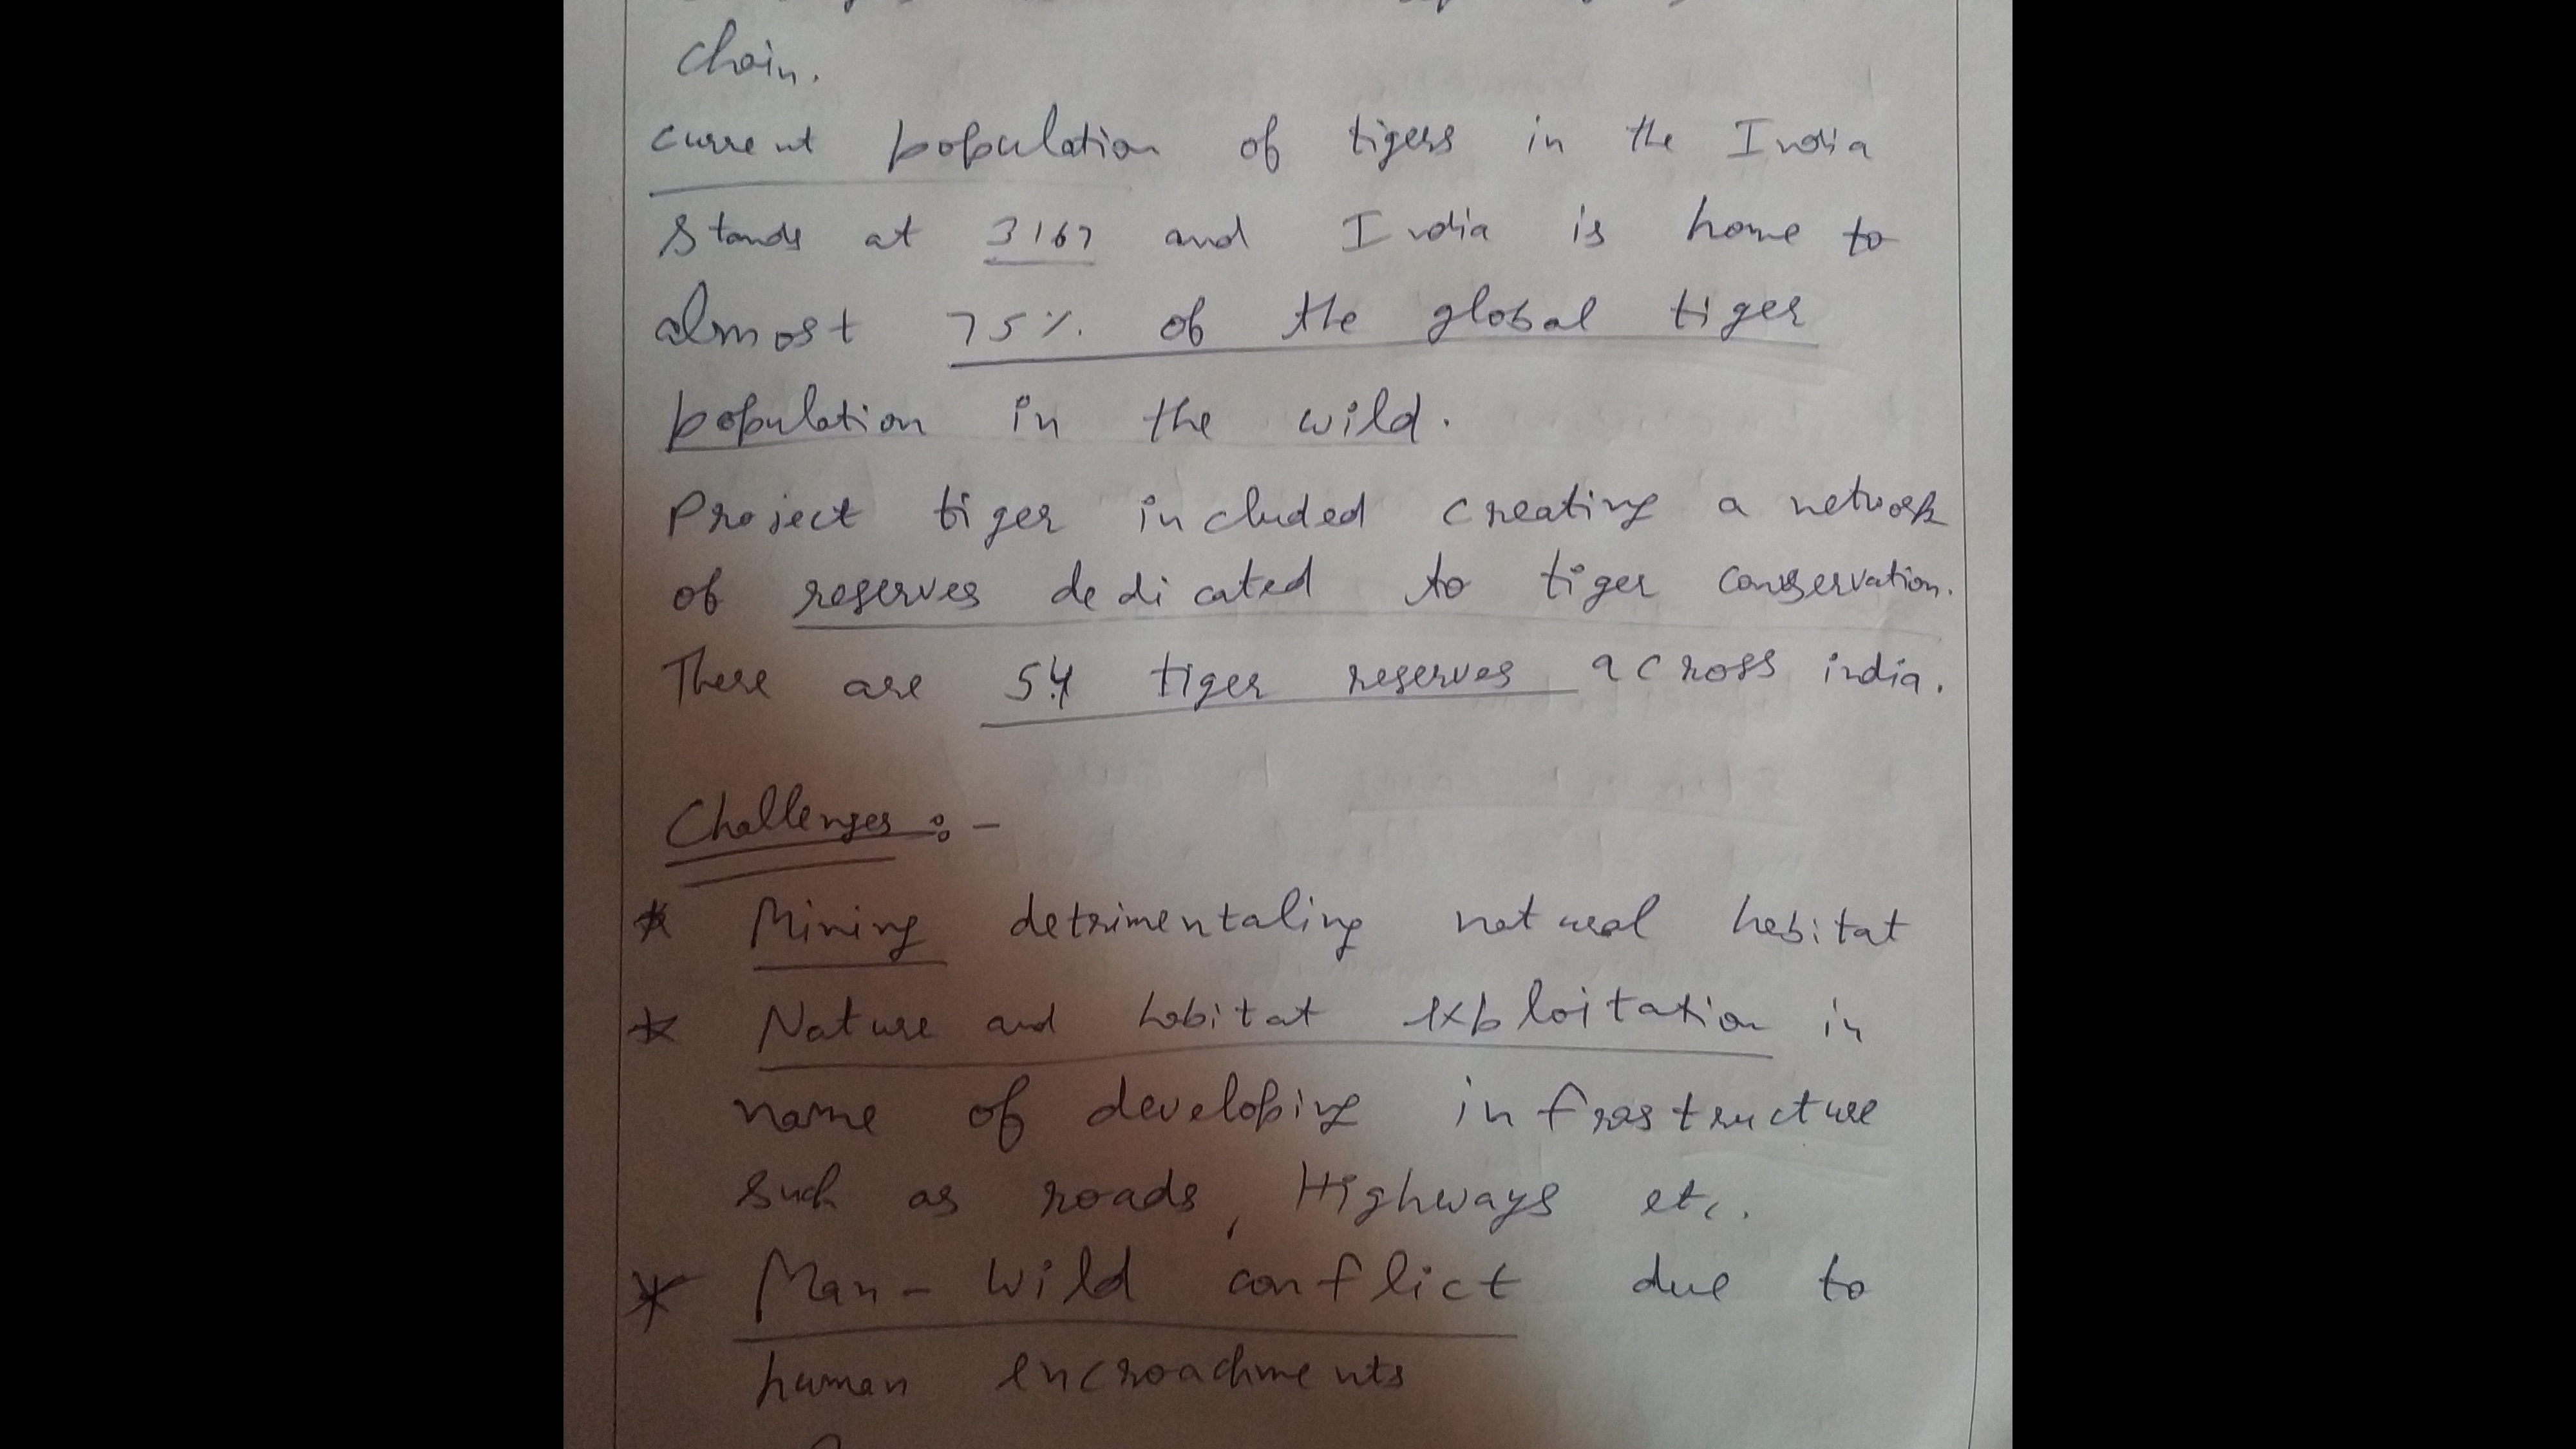 chain.
current population of tigers in the India
stands at 3167 and India is home to
almost 75% of the global tiger
population in the wild.
Project tiger included creating a network
of reserves dedicated to tiger conservation.
There are 54 tiger reserves across india.
Challenges :-
* Mining detrimentaling natural habitat
* Nature and habitat exploitation in
name of developing infrastructure
such as roads, Highways etc.
* Man-Wild conflict due to
human encroachments